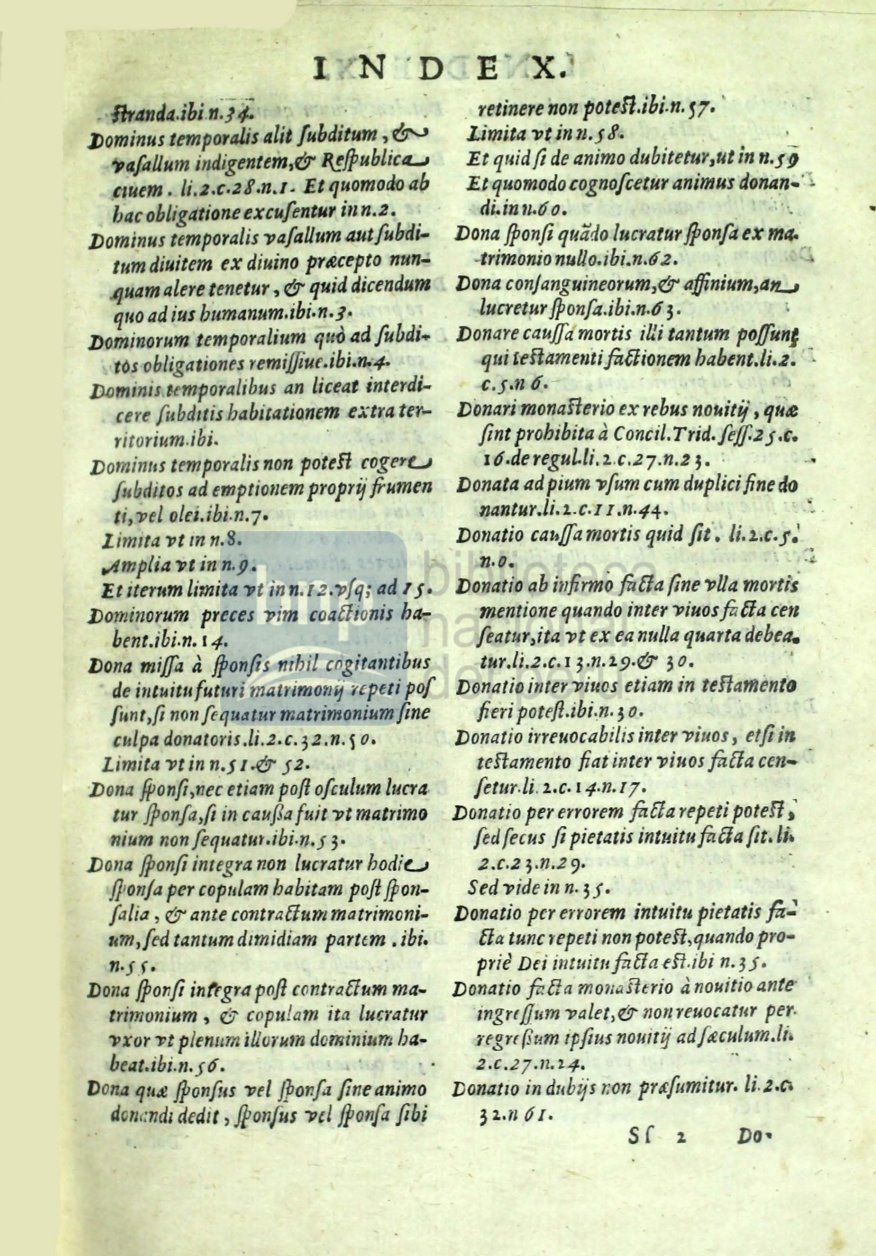 INDEX.
ſtranda.ibi n.34.
Dominus temporalis alit ſubditum, &
vaſallum indigentem, & Reſpublica
ciuem. li.2.c.28.n.1. Et quomodo ab
hac obligatione excuſentur in n.2.
Dominus temporalis vaſallum aut ſubdi-
tum diuitem ex diuino præcepto nun-
quam alere tenetur, & quid dicendum
quo ad ius humanum.ibi.n.3.
Dominorum temporalium quò ad ſubdi-
tos obligationes remiſſiue.ibi.n.4.
Dominis temporalibus an liceat interdi-
cere ſubditis habitationem extra ter-
ritorium.ibi.
Dominus temporalis non poteſt cogere
ſubditos ad emptionem proprij frumen
ti, vel olei.ibi.n.7.
Limita vt in n.8.
Amplia vt in n.9.
Et iterum limita vt in n.12.vſq; ad 15.
Dominorum preces vim coactionis ha-
bent.ibi.n.14.
Dona miſſa à ſponſis nihil cogitantibus
de intuitu futuri matrimonij repeti poſ
ſunt, ſi non ſequatur matrimonium ſine
culpa donatoris.li.2.c.32.n.50.
Limita vt in n.51.& 52.
Dona ſponſi, nec etiam poſt oſculum lucra
tur ſponſa, ſi in cauſſa fuit vt matrimo
nium non ſequatur.ibi.n.53.
Dona ſponſi integra non lucratur hodie
ſponſa per copulam habitam poſt ſpon-
ſalia, & ante contractum matrimoni-
um, ſed tantum dimidiam partem. ibi.
n.55.
Dona ſponſi integra poſt contractum ma-
trimonium, & copulam ita lucratur
vxor vt plenum illorum dominium ha-
beat.ibi.n.56.
Dona quæ ſponſus vel ſponſa ſine animo
donandi dedit, ſponſus vel ſponſa ſibi
retinere non poteſt.ibi.n.57.
Limita vt in n.58.
Et quid ſi de animo dubitetur, ut in n.59
Et quomodo cognoſcetur animus donan-
di.in n.60.
Dona ſponſi quãdo lucratur ſponſa ex ma.
trimonio nullo.ibi.n.62.
Dona conſanguineorum, & affinium, an
lucretur ſponſa.ibi.n.63.
Donare cauſſa mortis illi tantum poſſunt
qui teſtamenti factionem habent.li.2.
c.5.n 6.
Donari monaſterio ex rebus nouitij, quæ
ſint prohibita à Concil.Trid.ſeſſ.25.c.
16.de regul.li.2.c.27.n.23.
Donata ad pium vſum cum duplici fine do
nantur.li.2.c.11.n.44.
Donatio cauſſa mortis quid ſit. li.2.c.5.
n.0.
Donatio ab infirmo facta ſine vlla mortis
mentione quando inter viuos facta cen
ſeatur, ita vt ex ea nulla quarta debea.
tur.li.2.c.13.n.29.& 30.
Donatio inter viuos etiam in teſtamento
fieri poteſt.ibi.n.30.
Donatio irreuocabilis inter viuos, etſi in
teſtamento fiat inter viuos facta cen-
ſetur.li.2.c.14.n.17.
Donatio per errorem facta repeti poteſt,
ſed ſecus ſi pietatis intuitu facta ſit. li.
2.c.23.n.29.
Sed vide in n.35.
Donatio per errorem intuitu pietatis fa-
cta tunc repeti non poteſt, quando pro-
priè Dei intuitu facta eſt.ibi n.35.
Donatio facta monaſterio à nouitio ante
ingreſſum valet, & non reuocatur per.
regreſſum ipſius nouitij ad ſæculum.li.
2.c.27.n.24.
Donatio in dubijs non præſumitur. li.2.c.
32.n 61.
Sſ 2 Do-